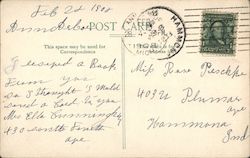 Feb 2d 1908
Ann Arbor
POST CARD
This space may be used for
Correspondence
I received a Book
from you
so I thought I would
send a Card to you
Mrs Ella Cunningham
430 South Fourth
ave
HAMMOND
1908
Miss Rose
403
ave
Hammond
Ind